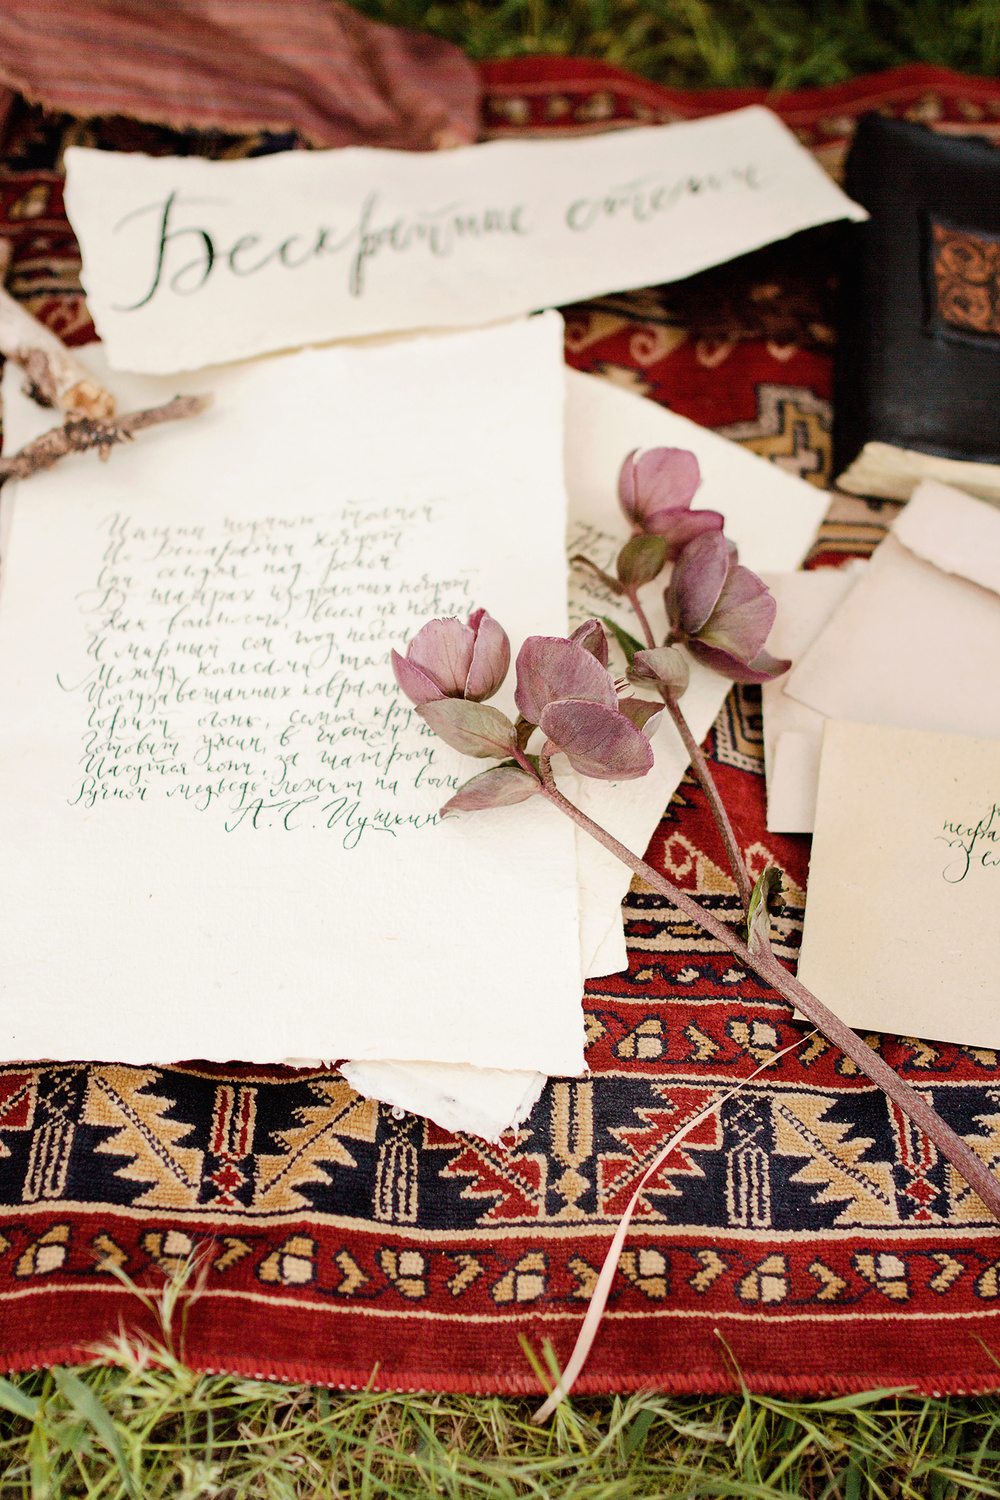 Бескрайние степи
Цыганы шумною толпой
По Бессарабии кочуют
Они сегодня над рекой
В шатрах изодранных ночуют
Как вольность, весел их ночлег
И мирный сон под небеса
Между колесами тел
Полузавешанных коврами
Горит огонь, семья кру
Готовит ужин, в чистом
Пасутся кони, за шатром
Ручной медведь лежит на воле
А. С. Пушкин